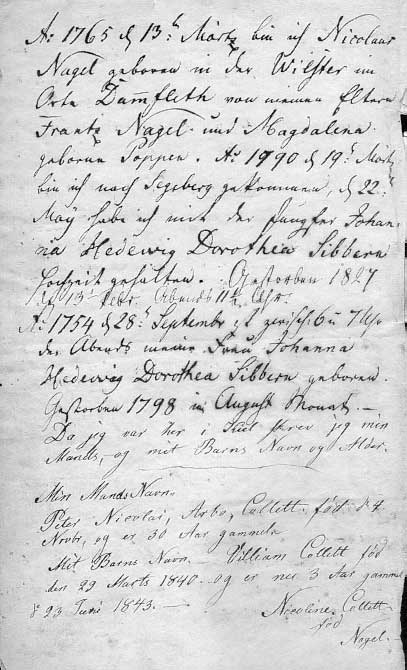 Ao 1765 d 13t Märtz bin ich Nicolaus
Nagel geboren in der Wilster im
Orte Dammfleth von meinen Eltern
Frantz Nagel und Magdalena
geborne Poppen. Ao 1790 d 19t Märtz
bin ich nach Segeberg gekommen, d 22t
May habe ich mit der Jungfer Johan-
na Hedewig Dorothea Sibbern
Hochzeit gehalten. Gestorben 1827
d 13t Febr. Abends 11½ Uhr.
Ao 1754 d 28t Septembr ist zwisch 6 u 7 Uhr
des Abends meine Frau Johanna
Hedewig Dorothea Sibbern geboren.
Gestorben 1798 im August Monat. —
Da jeg var her i Kiel skrev jeg min
Mands, og mit Barns Navn og Alder.
Min Mands Navn.
Peter Nicolai, Arbo, Collett. fød. d 4
Novbr, og er 30 Aar gammel.
Mit Barns Navn — William Collett fød
den 29 Marts 1840 og er nu 3 Aar gammel
d 23 Juni 1843. —
Nicoline Collett
fød
Nagel. —